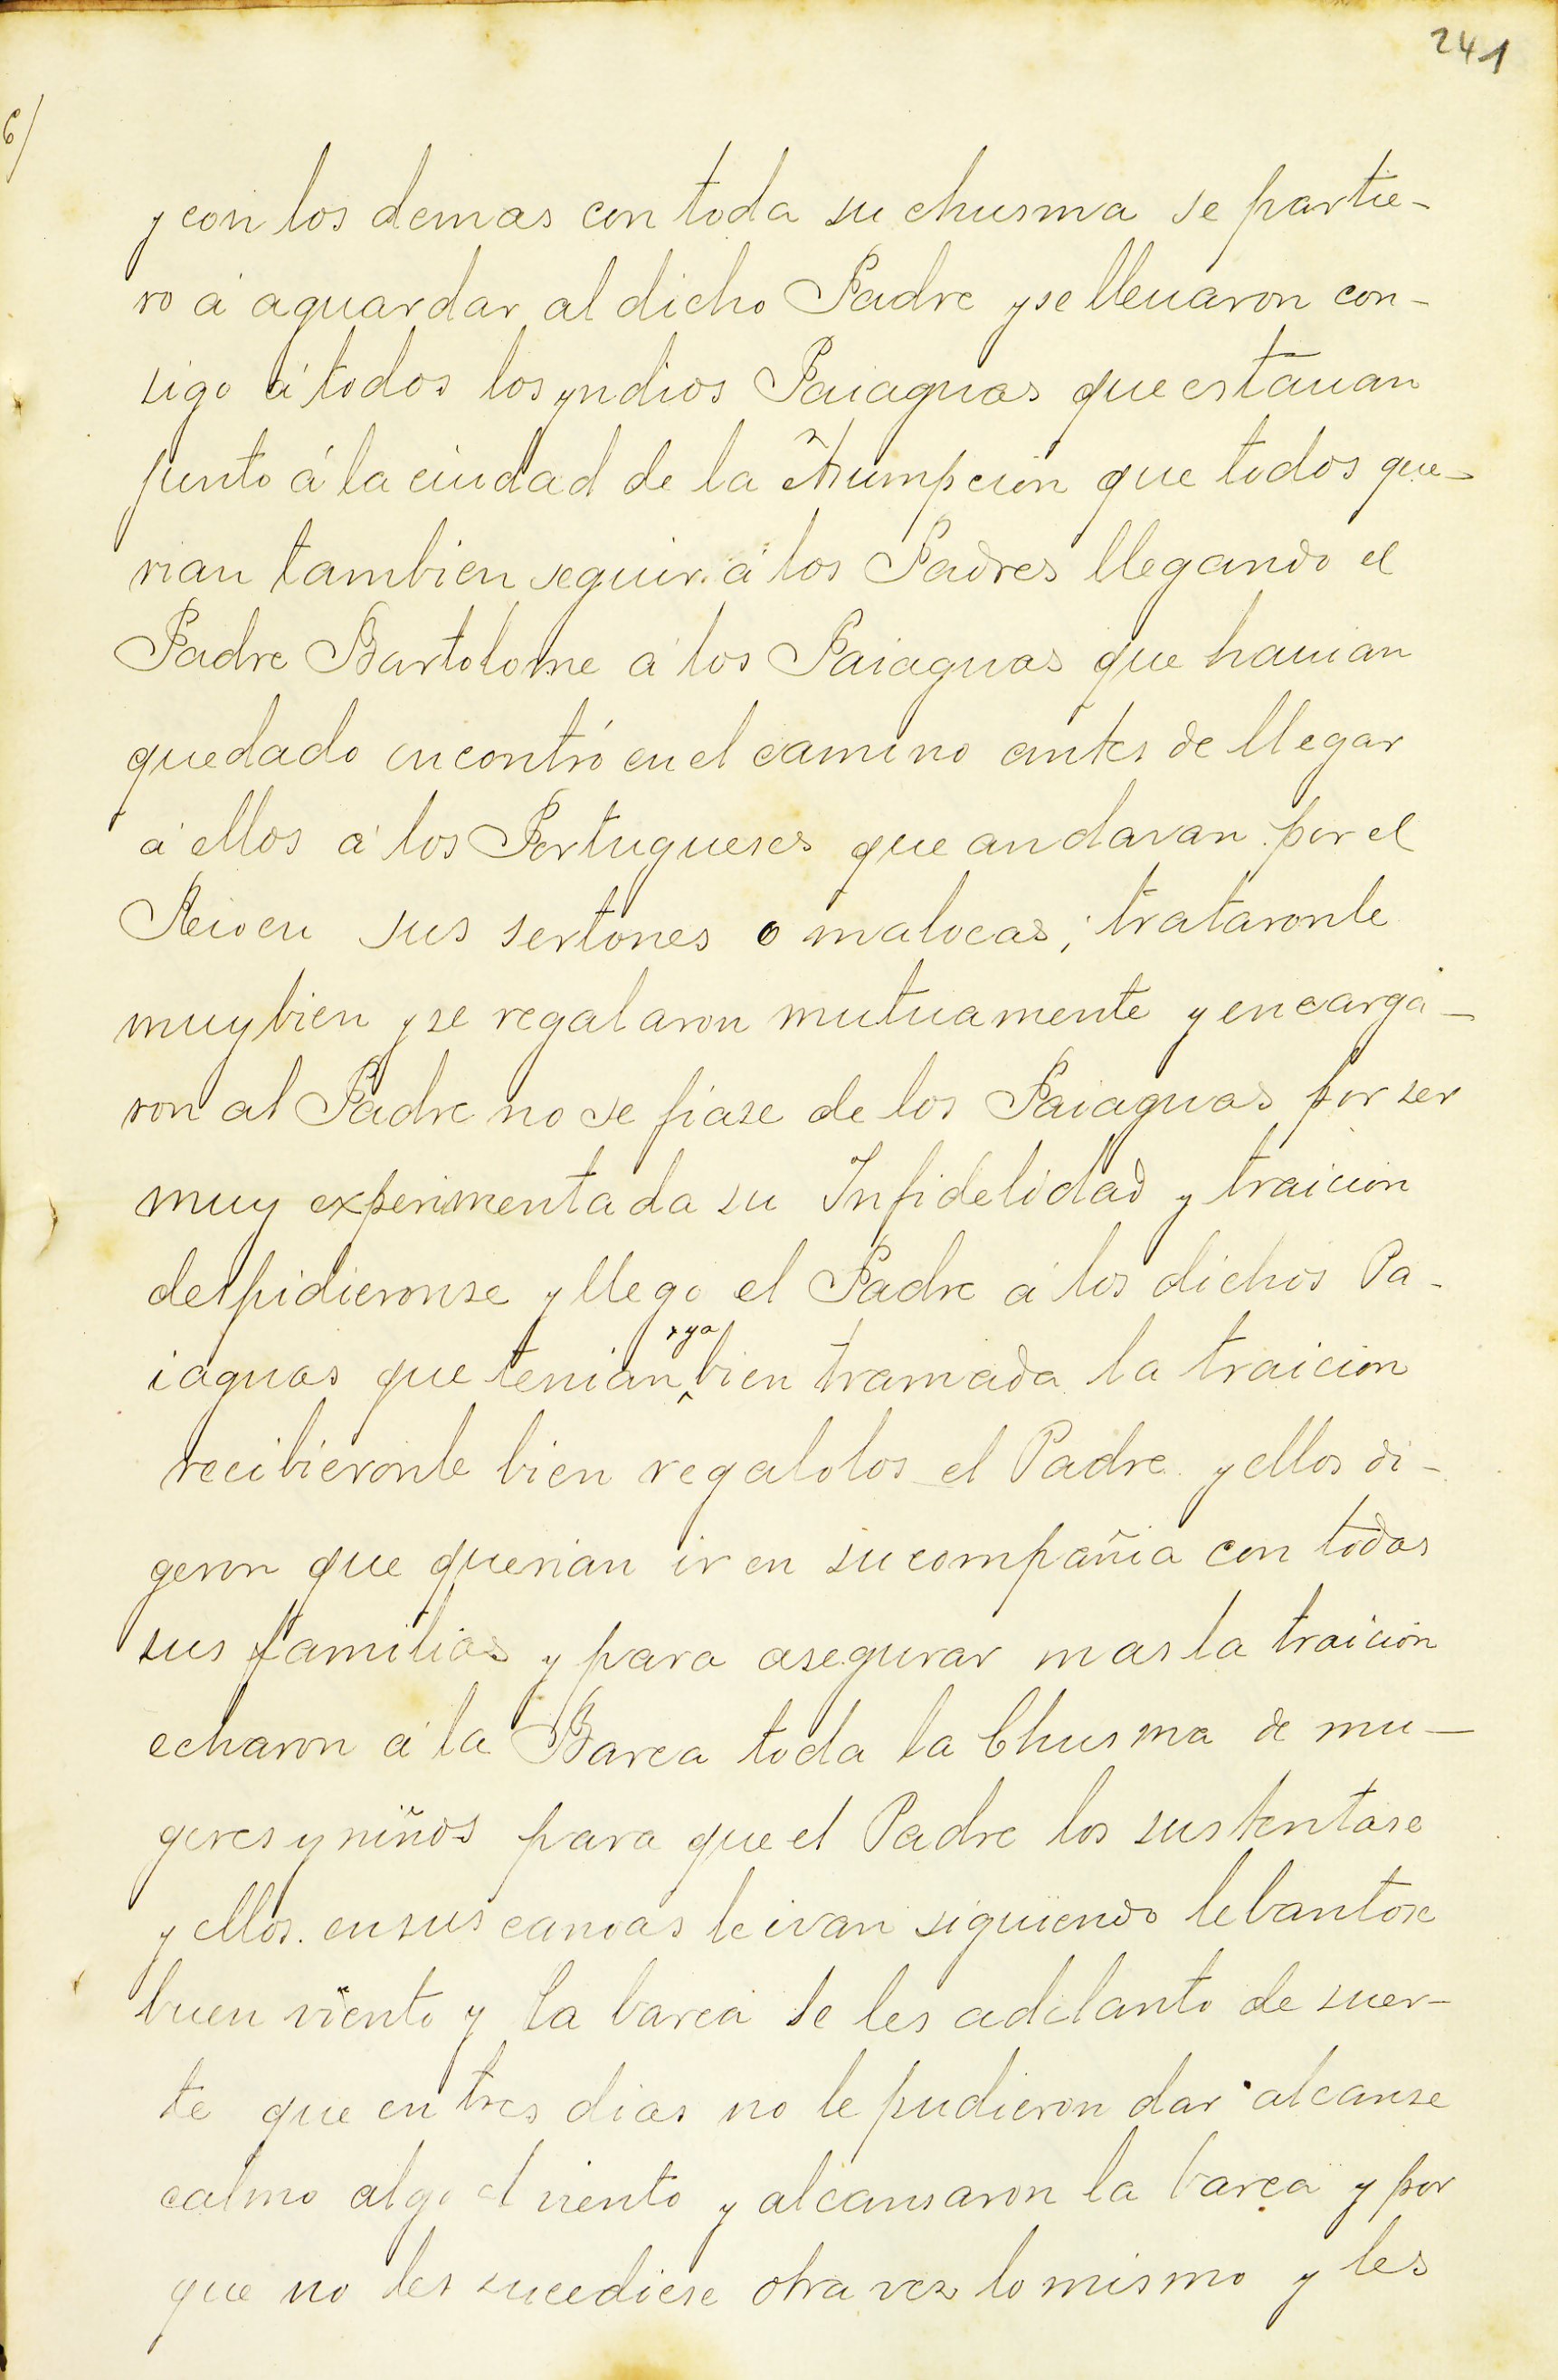 241
6/
y con los demas con toda su chusma se partie-
ro á aguardar al dicho Padre y se lleuaron con-
sigo á todos los yndios Paiaguas que estauan
junto á la ciudad de la Assumpcion que todos que-
rian tambien seguir á los Padres llegando el
Padre Bartolome á los Paiaguas que hauian
quedado encontró en el camino antes de llegar
á ellos á los Portugueses que andavan por el
Rio en sus sertones o malocas; trataronle
muy bien y se regalaron mutuamente y encargá-
ron al Padre no se fiase de los Paiaguas por ser
muy experimentada su Infidelidad y traicion
despidieronse y llego el Padre á los dichos Pa-
iaguas que tenian ya bien tramada la traicion
recibieronle bien regalolos el Padre y ellos di-
geron que querian ir en su compañia con todas
sus familias y para asegurar mas la traicion
echaron á la Barca toda la Chusma de mu-
geres y niños para que el Padre los sustentase
y ellos en sus canoas le ivan siguiendo lebantose
buen viento y la barca se les adelanto de suer-
te que en tres dias no le pudieron dar alcanse
calmo algo el viento y alcansaron la barca y por
que no les sucediese otra vez lo mismo y les